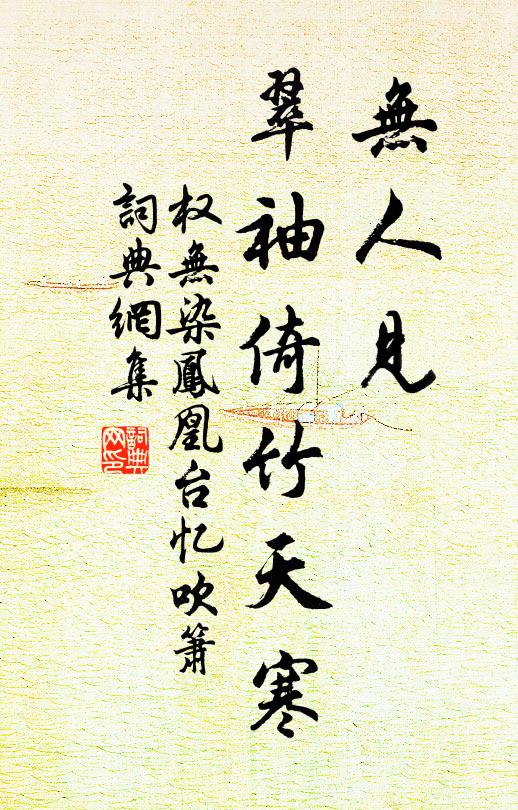 無人見
翠袖倚竹天寒
权無染鳳凰台忆吹簫
詞典網集
詞典网印